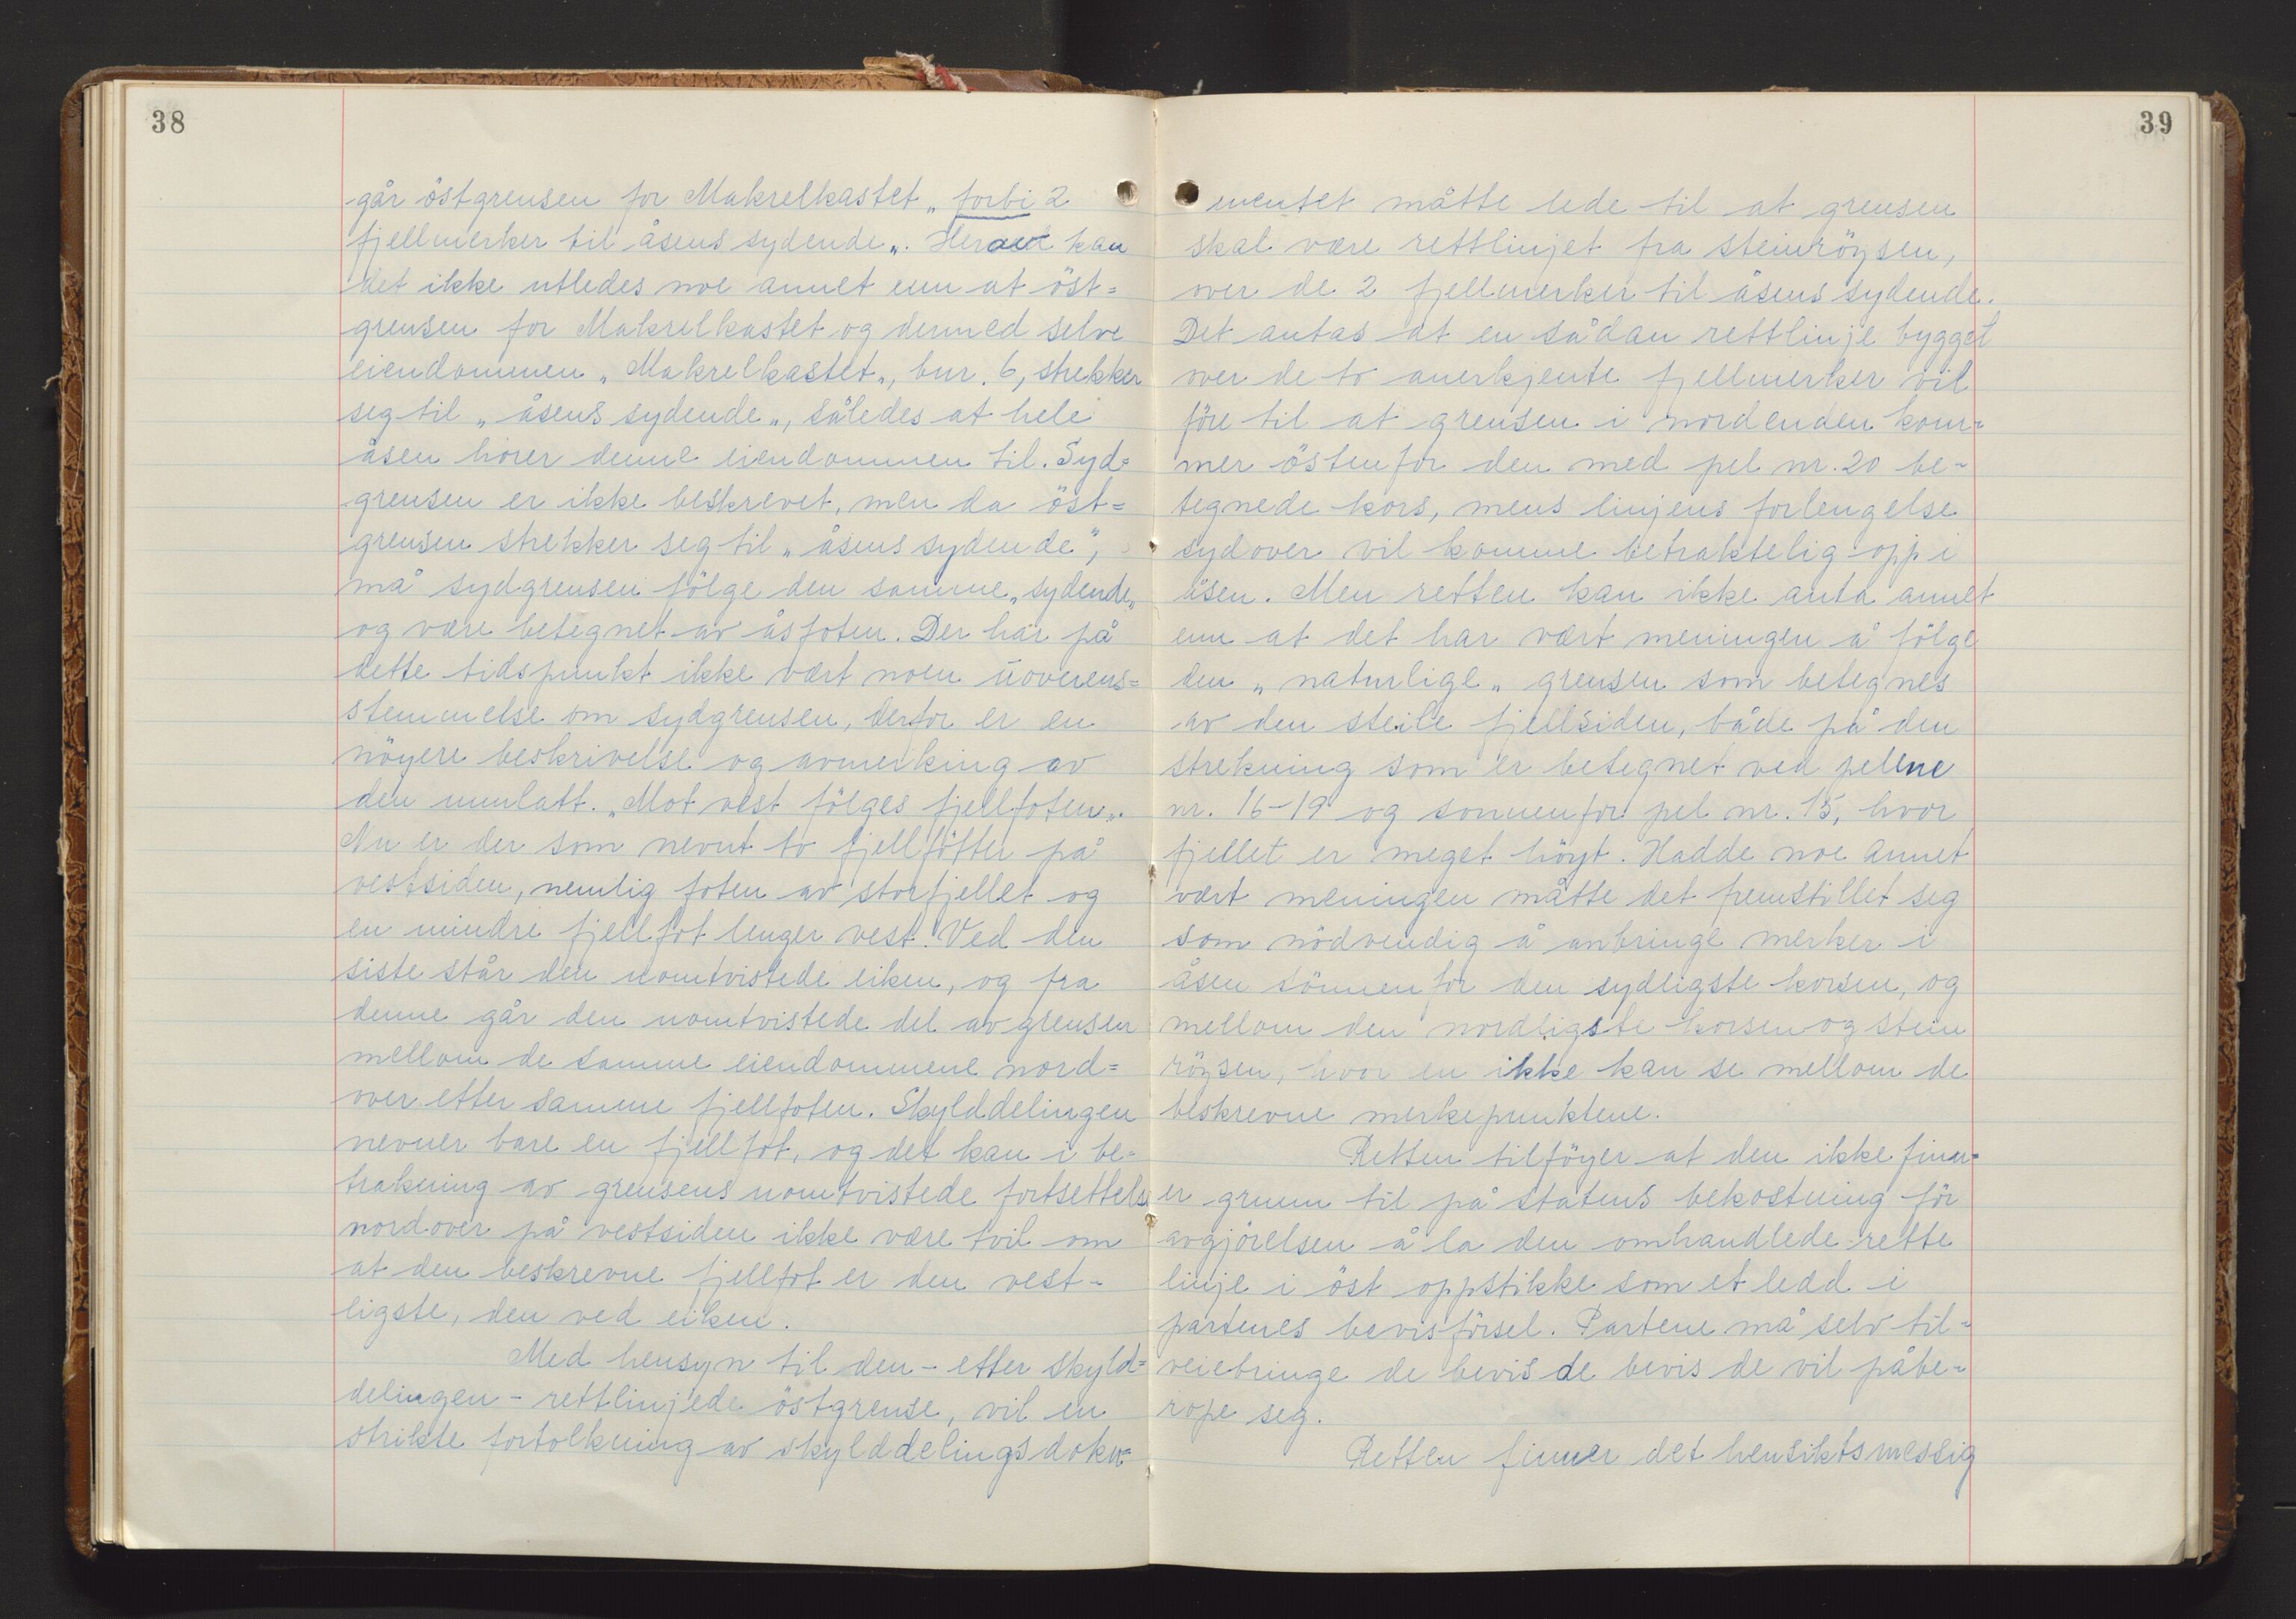 38
går östgrensen for Makrelkastet „ forbi 2
fjellmerker til åsens sydende„. Herav kan
det ikke utledes noe annet enn at öst=
grensen for Makrelkastet og dermed selve
eiendommen „Makrelkastet„, bnr. 6, strekker
seg til „åsens sydende„, således at hele
åsen hörer denne eiendommen til. Syd=
grensen er ikke beskrevet, men da öst=
grensen strekker seg til „åsens sydende",
må sydgrensen fölge den samme „sydende„
og være betegnet av åsfoten. Der har på
dette tidspunkt ikke vært noen uoverens=
stemmelse om sydgrensen, derfor er en
nöyere beskrivelse og avmerking av
den unnlatt. „Mot vest fölges fjellfoten„.
Nu er der som nevnt to fjellfötter på
vestsiden, nemlig foten av storfjellet og
en mindre fjellfot lenger vest. Ved den
siste står den uomtvistede eiken, og fra
denne går den uomtvistede del av grensen
mellom de samme eiendommene nord=
over etter samme fjellfoten. Skylddelingen
nevner bare en fjellfot, og det kan i be-
trakning av grensens uomtvistede fortsettelse
nordover på vestsiden ikke være tvil om
at den beskrevne fjellfot er den vest-
ligste, den ved eiken.
Med hensyn til den - etter skyld=
delingen - rettlinjede östgrense, vil en
strikte fortolkning av skylddelingsdoku=
39
mentet måtte lede til at grensen
skal være rettlinjet fra steinröysen,
over de 2 fjellmerker til åsens sydende.
Det antas at en sådan rettlinje bygget
over de to anerkjente fjellmerker vil
före til at grensen i nordenden kom=
mer östenfor den med pel nr. 20 be-
tegnede kors, mens linjens forlengelse
sydover vil komme betraktelig opp i
åsen. Men retten kan ikke anta annet
enn at det har vært meningen å fölge
den „naturlige„ grensen som betegnes
av den steile fjellsiden, både på den
strekning som er betegnet ved pelene
nr. 16-19 og sönnenfor pel nr. 15, hvor
fjellet er meget höyt. Hadde noe annet
vært meningen måtte det fremstillet seg
som nödvendig å anbringe merker i
åsen sönnenfor den sydligste korsen, og
mellom den nordligste korsen og stein
röysen, hvor en ikke kan se mellom de
beskrevne merkepunktene.
Retten tilföyer at den ikke finn=
er grunn til på statens bekostning för
avgjörelsen å la den omhandlede rette
linje i öst oppstikke som et ledd i
partenes bevisförsel. Partene må selv til=
veiebringe de bevis de bevis de vil påbe-
rope seg.
Retten finner det hensiktsmessig